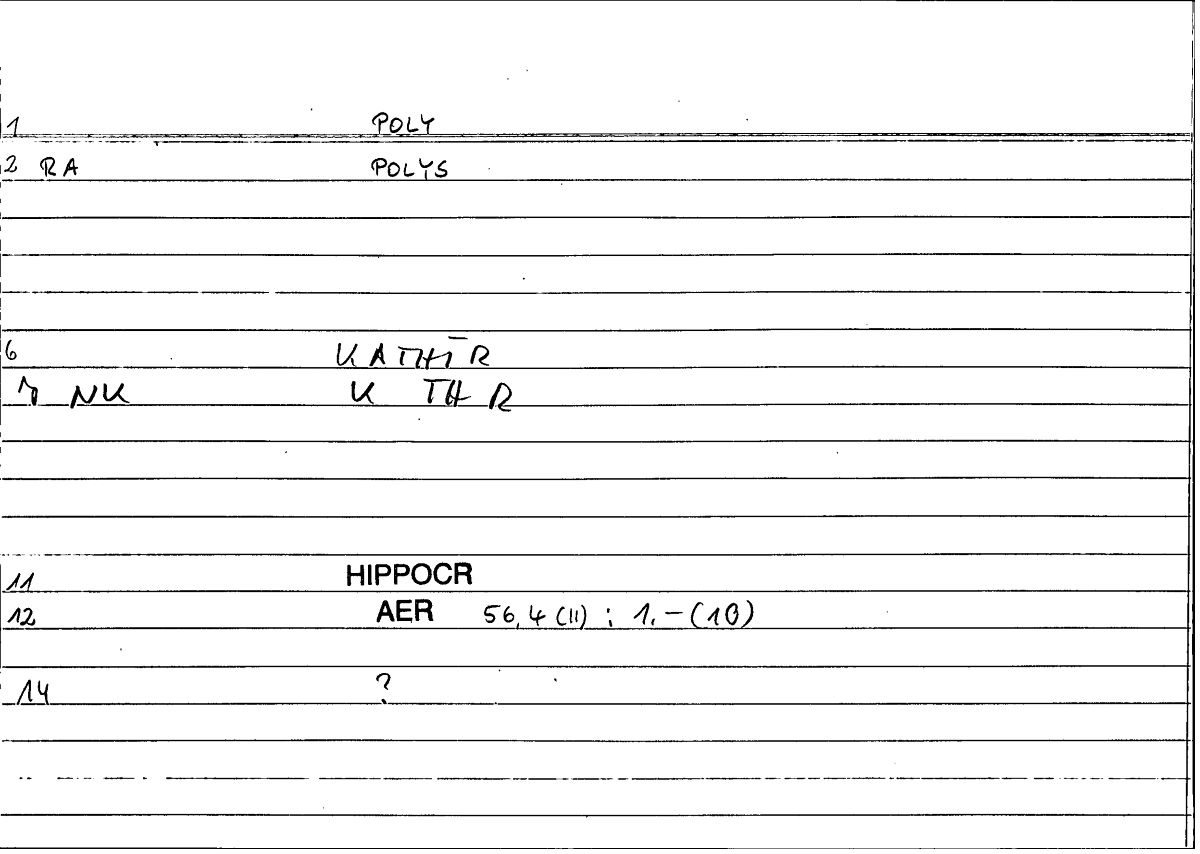 1 POLY
2 RA POLYS
6 KATHĪR
7 NK K TH R
11 HIPPOCR
12 AER 56,4 (11) ; 1.-(10)
14 ?